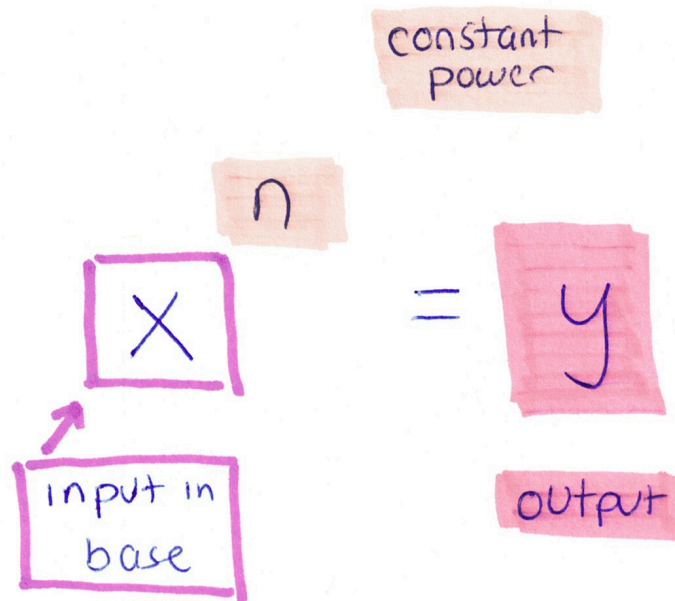 constant
power
n
x = y
input in
base
output